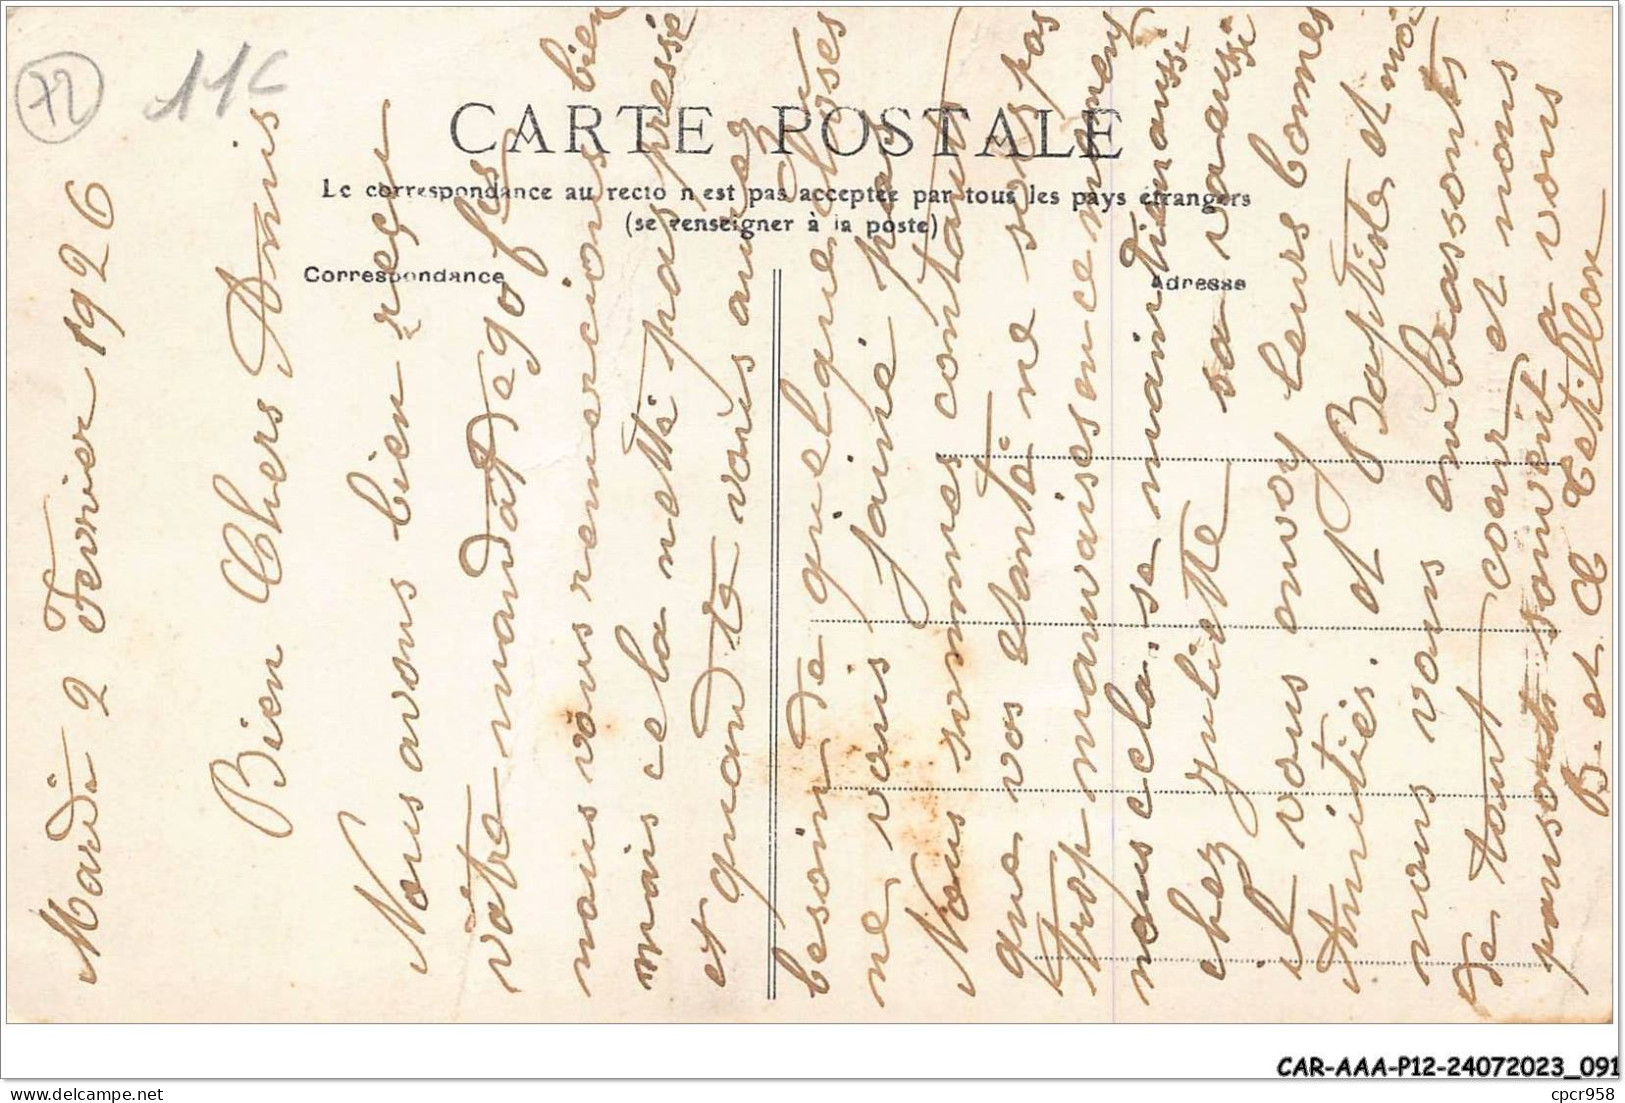 72
11C
CARTE POSTALE
Le correspondance au recto n'est pas acceptée par tous les pays étrangers
(se renseigner à la poste)
Correspondance
Adresse
Mardi 2 Fevrier 1926
Bien Chers Amis
Nous avons bien reçu
votre mandat de 90 fcs
nous vous remercions bien
mais cela netti pas pressé
et quand te vous aurez
besoin de quelque choses
ne vous jainé pas
Nous sommes contant
que vos santé ne sons pas
trop mauvaise en ce moment
nous cela se maintien aussi
chez Juliette sa va aussi
il vous envoy leurs bonnes
Amitiés. et Baptiste et moi
nous vous embrassont
de tout coeur et nous
pensont souvent a vous
B. et C Tetillon
CAR-AAA-P12-24072023_091
cpcr958